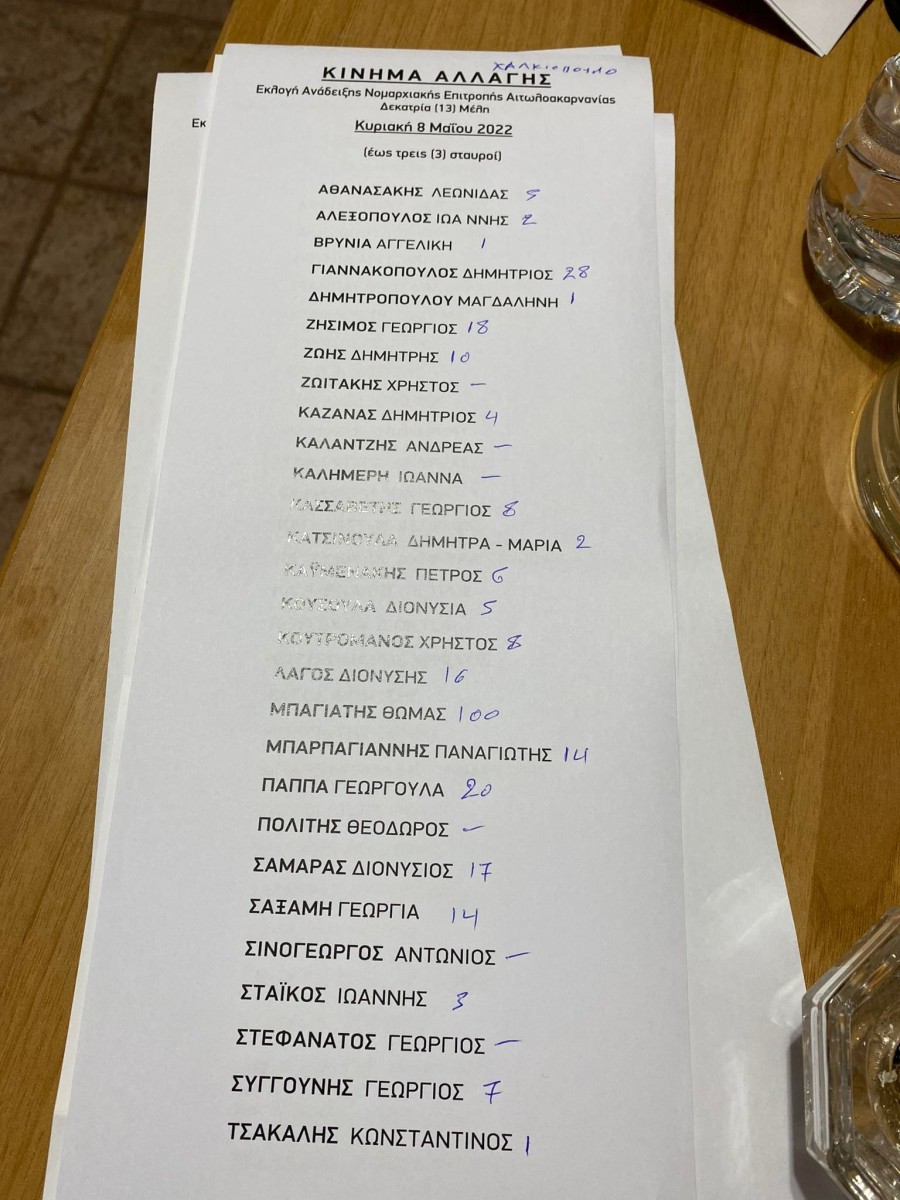 ΧΑΛΚΙΟΠΟΥΛΟ
ΚΙΝΗΜΑ ΑΛΛΑΓΗΣ
Εκλογή Ανάδειξης Νομαρχιακής Επιτροπής Αιτωλοακαρνανίας
Δεκατρία (13) Μέλη
Εκ
Κυριακή 8 Μαΐου 2022
(έως τρεις (3) σταυροί)
ΑΘΑΝΑΣΑΚΗΣ ΛΕΩΝΙΔΑΣ 5
ΑΛΕΞΟΠΟΥΛΟΣ ΙΩΑ ΝΝΗΣ 2
ΒΡΥΝΙΑ ΑΓΓΕΛΙΚΗ 1
ΓΙΑΝΝΑΚΟΠΟΥΛΟΣ ΔΗΜΗΤΡΙΟΣ 28
ΔΗΜΗΤΡΟΠΟΥΛΟΥ ΜΑΓΔΑΛΗΝΗ 1
ΖΗΣΙΜΟΣ ΓΕΩΡΓΙΟΣ 18
ΖΩΗΣ ΔΗΜΗΤΡΗΣ 10
ΖΩΙΤΑΚΗΣ ΧΡΗΣΤΟΣ —
ΚΑΖΑΝΑΣ ΔΗΜΗΤΡΙΟΣ 4
ΚΑΛΑΝΤΖΗΣ ΑΝΔΡΕΑΣ —
ΚΑΛΗΜΕΡΗ ΙΩΑΝΝΑ —
ΚΑΣΣΑΒΕΤΗΣ ΓΕΩΡΓΙΟΣ 8
ΚΑΤΣΙΝΟΥΛΑ ΔΗΜΗΤΡΑ - ΜΑΡΙΑ 2
ΚΑΫΜΕΝΑΚΗΣ ΠΕΤΡΟΣ 6
ΚΟΥΣΟΥΛΑ ΔΙΟΝΥΣΙΑ 5
ΚΟΥΤΡΟΜΑΝΟΣ ΧΡΗΣΤΟΣ 8
ΛΑΓΟΣ ΔΙΟΝΥΣΗΣ 16
ΜΠΑΓΙΑΤΗΣ ΘΩΜΑΣ 100
ΜΠΑΡΠΑΓΙΑΝΝΗΣ ΠΑΝΑΓΙΩΤΗΣ 14
ΠΑΠΠΑ ΓΕΩΡΓΟΥΛΑ 20
ΠΟΛΙΤΗΣ ΘΕΟΔΩΡΟΣ —
ΣΑΜΑΡΑΣ ΔΙΟΝΥΣΙΟΣ 17
ΣΑΞΑΜΗ ΓΕΩΡΓΙΑ 14
ΣΙΝΟΓΕΩΡΓΟΣ ΑΝΤΩΝΙΟΣ —
ΣΤΑΪΚΟΣ ΙΩΑΝΝΗΣ 3
ΣΤΕΦΑΝΑΤΟΣ ΓΕΩΡΓΙΟΣ —
ΣΥΓΓΟΥΝΗΣ ΓΕΩΡΓΙΟΣ 7
ΤΣΑΚΑΛΗΣ ΚΩΝΣΤΑΝΤΙΝΟΣ 1